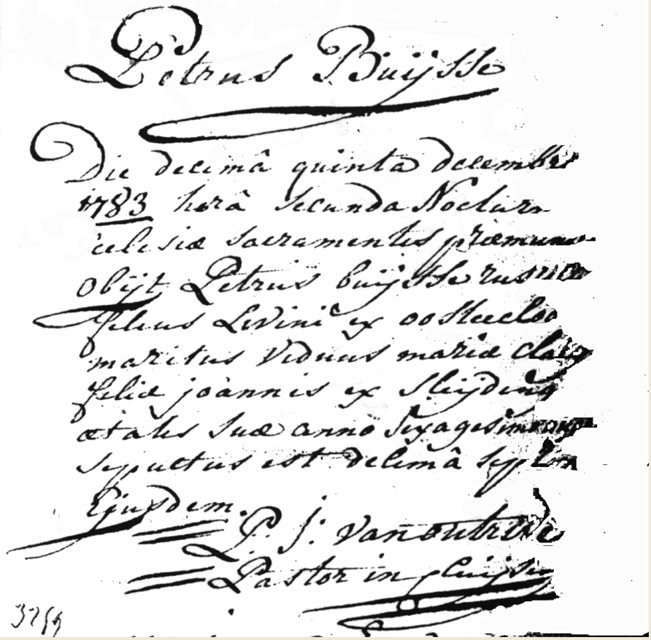 Petrus Buijsse
Die decimâ quinta decembr
1783 horâ secunda Noctur
eclesiæ sacramentis præmun
obijt Petrus buijsse rus
filius Livini ex oosteecloo
maritus viduus mariæ claeij
filiæ joânnis ex sleijdinge
ætatis suæ anno sexagesimo
sepultus est decimâ septim
Ejusdem.
P. J. vanoutrive
Pastor in sluijse